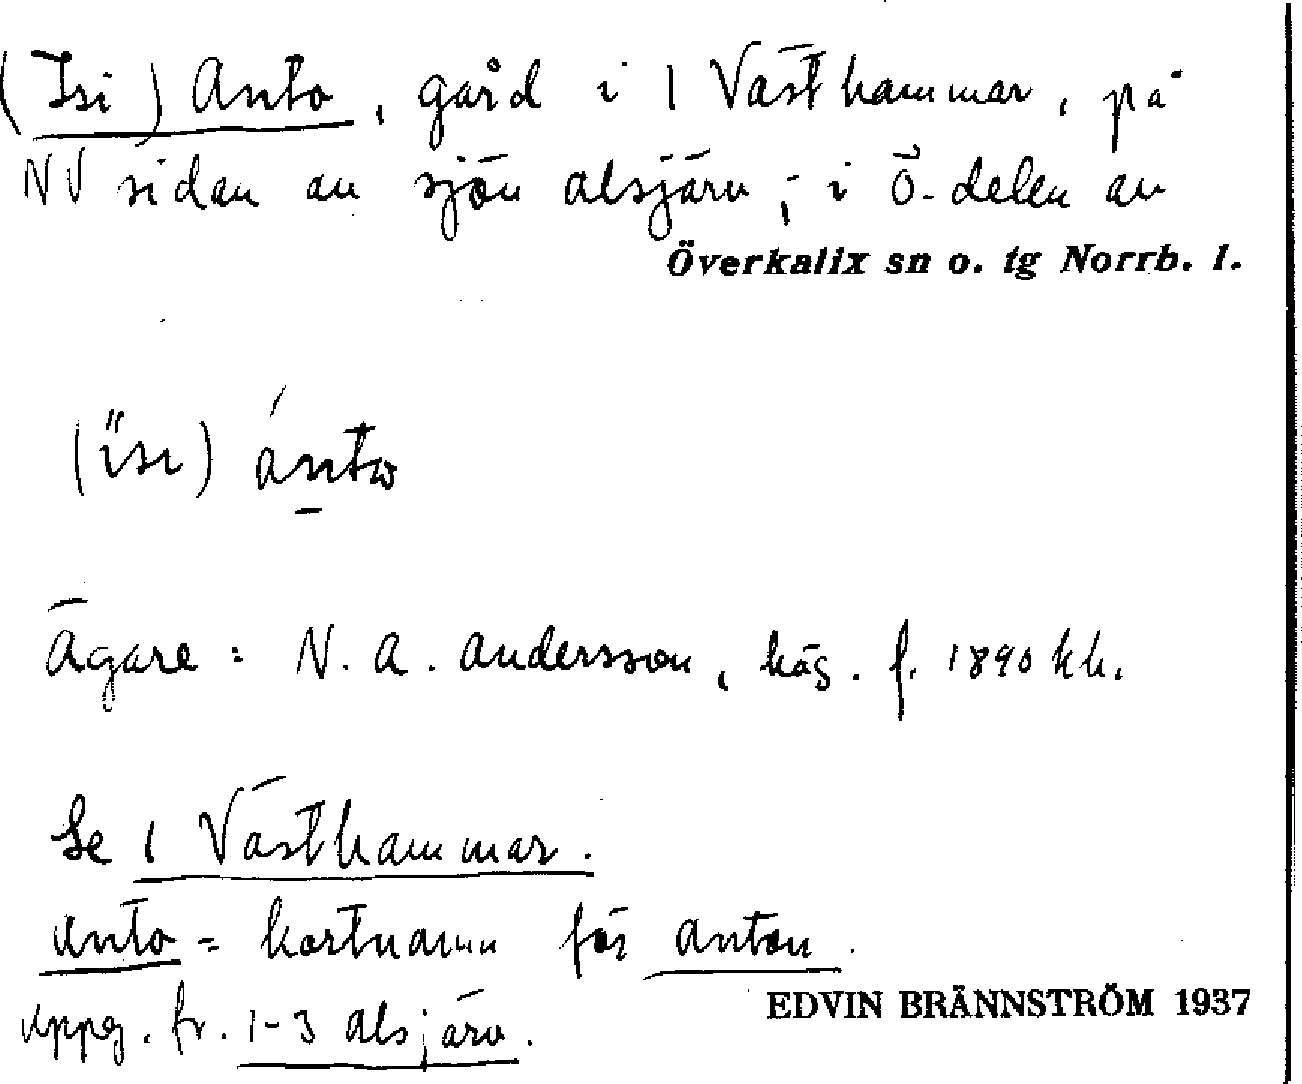 (Isi) Anto, gård i 1 Västhammar, på
NV sidan av sjön Alsjärv, i Ö. delen av
Överkalix sn o. tg Norrb. l.
(ïsi) ánto
Ägare: N. A. Andersson, häg. f. 1890 kh.
Se 1 Västhammar.
Anto = kortnamn för Anton.
Uppg. fr. 1-3 Alsjärv.
EDVIN BRÄNNSTRÖM 1937